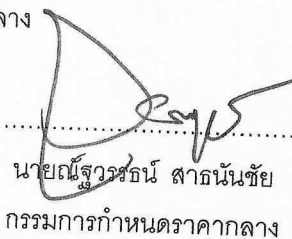 ลาง
นายณัฐวรรธน์ สาธนันชัย
กรรมการกำหนดราคากลาง